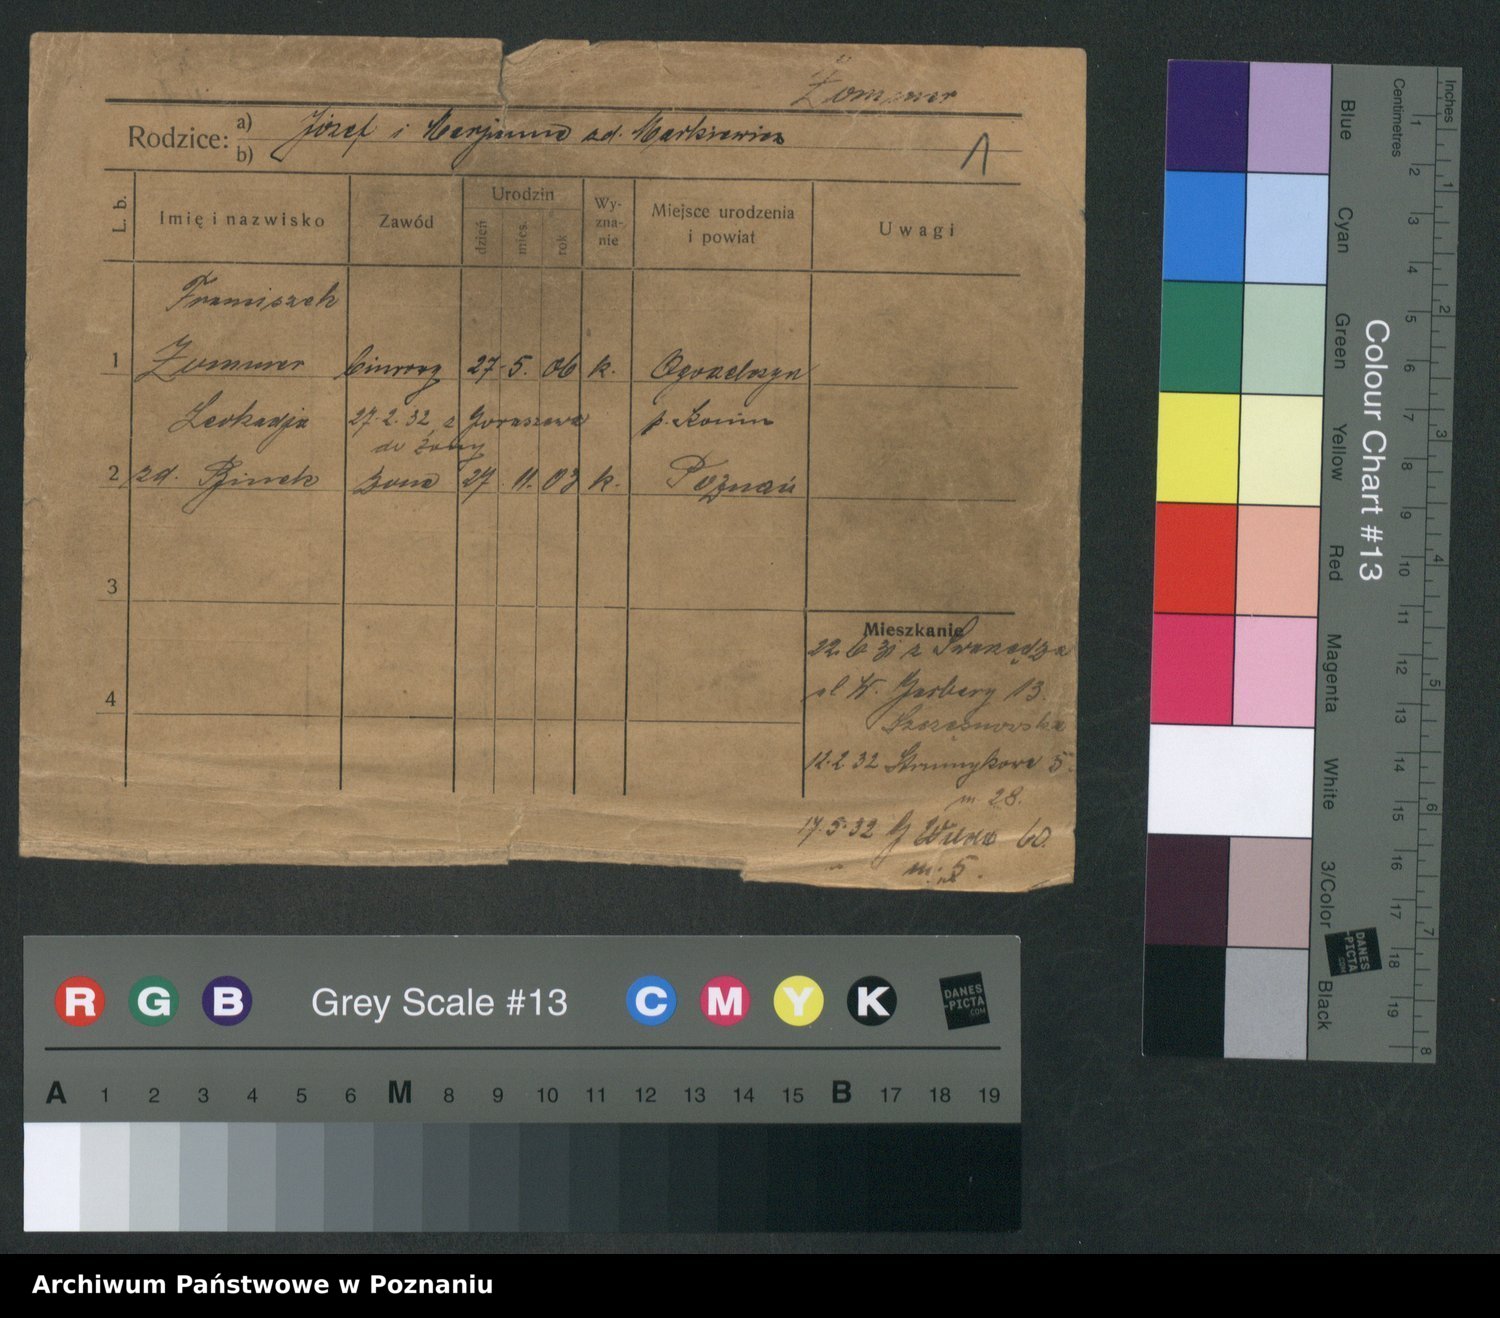 Żommer
Rodzice: a) Józef i Marjanna zd. Markiewicz
b)
L. b.
Imię i nazwisko
Zawód
Urodzin
dzień
mies.
rok
Wy-
zna-
nie
Miejsce urodzenia
i powiat
Uwagi
Franciszek
1 Żommer 27. 5. 06 k.
Leokadja 27.2.32 z
p. Konin
do żony
2 zd. żona 27 11. 03 k. Poznań
3
4
Mieszkanie
22.6.31 z Swarzędza
13.
12.2.32 5
m 28.
17.5.32 G Wilda 60
m. 5.
Blue
Cyan
Green
Yellow
Red
Magenta
White
3/Color
Black
Colour Chart #13
Centimetres
1 2 3 4 5 6 7 8 9 10 11 12 13 14 15 16 17 18 19
Inches
1 2 3 4 5 6 7 8
DANES
-PICTA
.COM
R G B Grey Scale #13 C M Y K
DANES
-PICTA
.COM
A 1 2 3 4 5 6 M 8 9 10 11 12 13 14 15 B 17 18 19
Archiwum Państwowe w Poznaniu